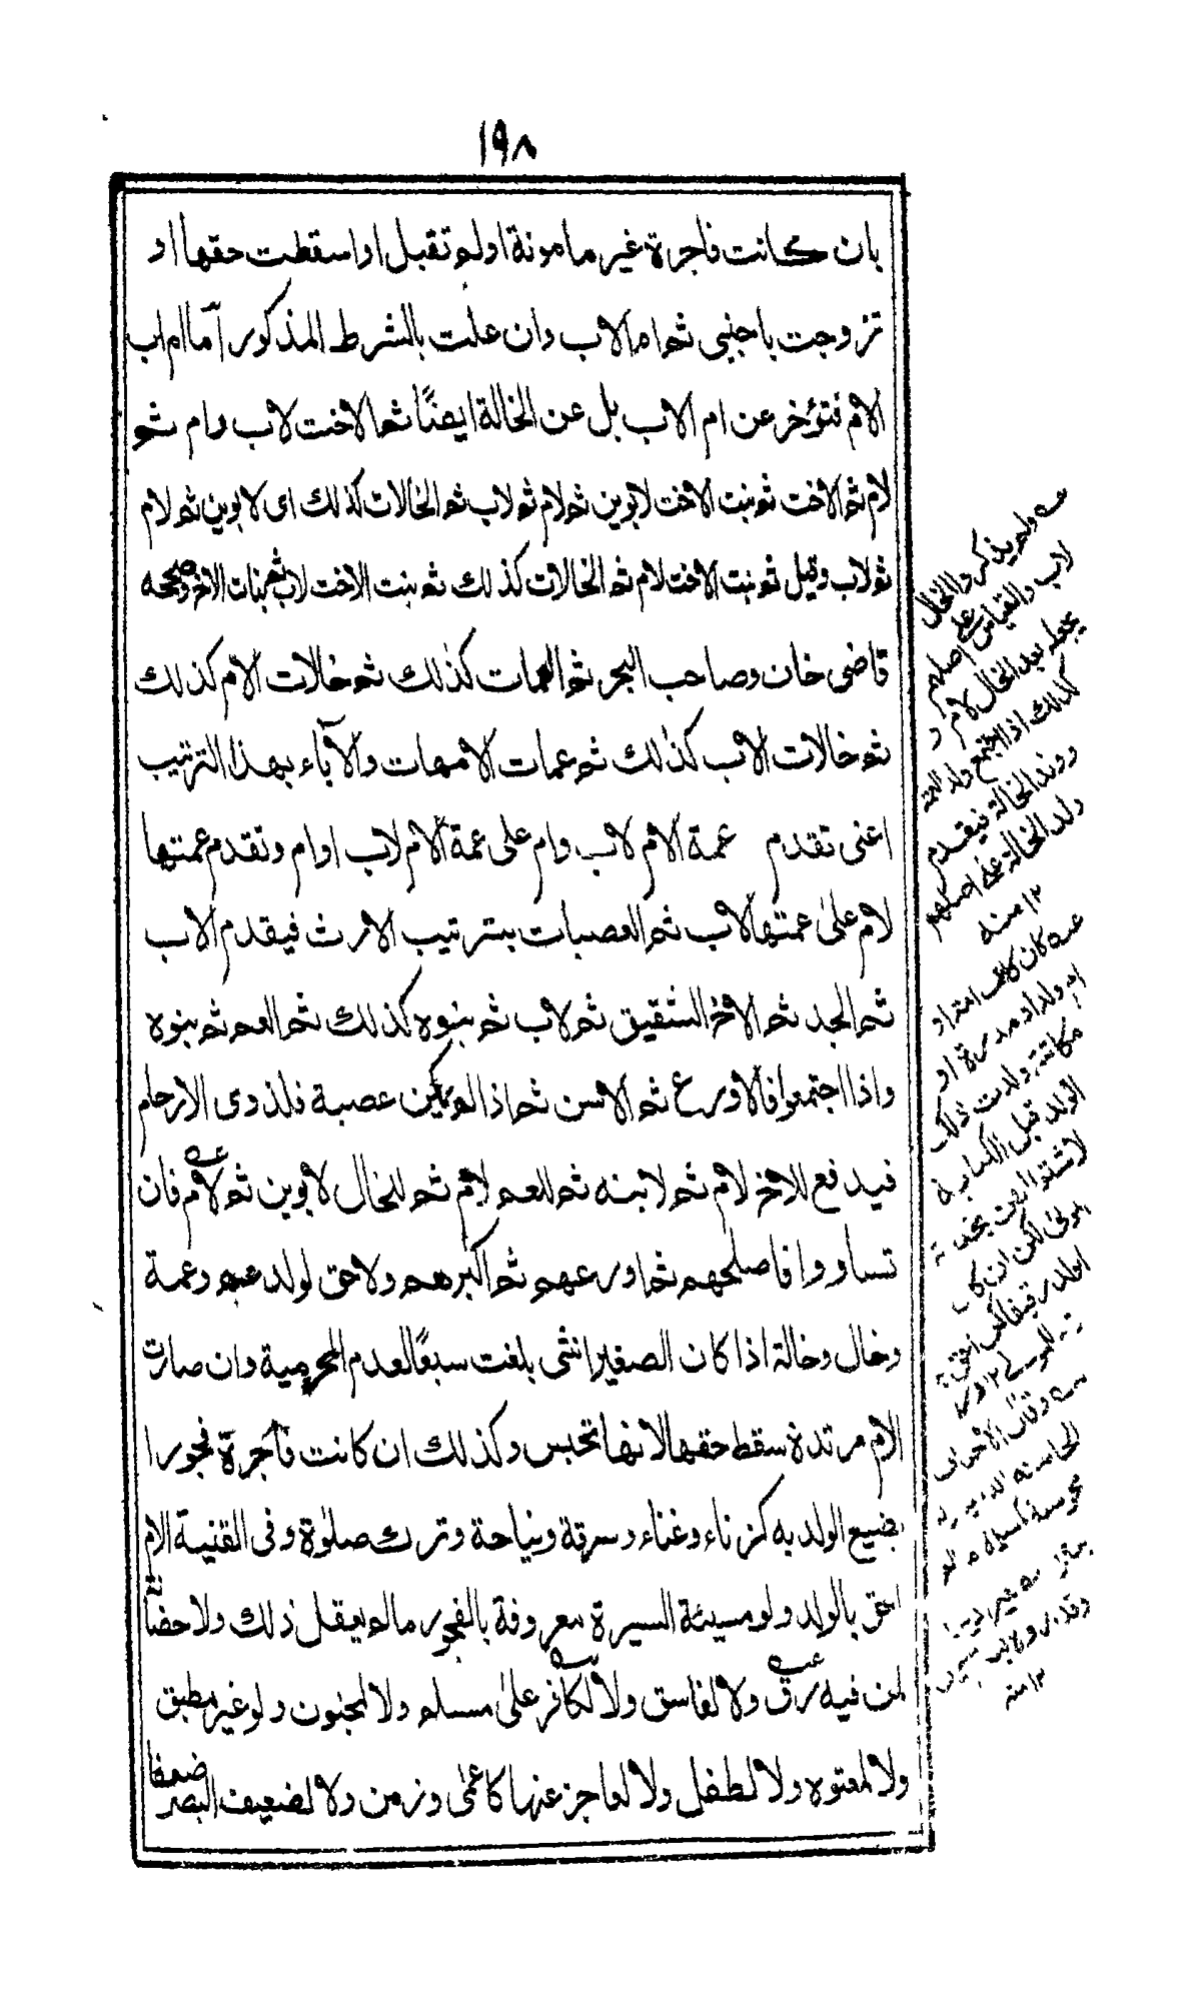 ١٩٨
بان كانت فاجرة غير مامونة او لم تقبل او اسقطت حقها او
تزوجت باجنبي ثم ام الاب وان علت بالشرط المذكور اما ام اب
الام فتؤخر عن ام الاب بل عن الخالة ايضًا ثم الاخت لاب وام ثم
لام ثم الاخت ثم بنت الاخت لابوين ثم لام ثم لاب ثم الخالات كذلك اى لابوين ثم لام
ثم لاب وقيل ثم بنت الاخت لام ثم الخالات كذلك ثم بنت الاخت لاب ثم بنات الاخ وصححه
قاضى خان وصاحب البحر ثم العمات كذلك ثم خالات الام كذلك
ثم خالات الاب كذلك ثم عمات الامهات والآباء بهذا الترتيب
اعنى تقدم عمة الام لاب وام على عمة الام لاب او ام وتقدم عمتها
لام على عمتها لاب ثم العصبات بترتيب الارث فيقدم الاب
ثم الجد ثم الاخ الشقيق ثم لاب ثم بنوه كذلك ثم العم ثم بنوه
واذا اجتمعوا فالاورع ثم الاسن ثم اذا لم يكن عصبة فلذوى الارحام
فيدفع للاخ لام ثم لابنه ثم للعم لام ثم للخال لابوين ثم لام فان
تساووا فاصلحهم ثم اورعهم ثم اكبرهم ولا حق لولد عم وعمة
وخال وخالة اذا كان الصغير انثى بلغت سبعًا لعدم المحرمية وان صارت
الام مرتدة سقط حقها لانها تحبس وكذلك ان كانت فاجرة فجورا
يضيع الولد به كزناء وغناء وسرقة ونياحة وترك صلوٰة وفى القنية الام
احق بالولد ولو مسيئة السيرة معروفة بالفجور ما لم يعقل ذلك ولا حضانة
لمن فيه رق ولا لفاسق ولا لكافر على مسلم ولا لمجنون ولو غير مطبق
ولا لمعتوه ولا لطفل ولا لعاجز عنها كاعمى وزمن ولا لضعيف البصر ضعفا
عه ولم يذكر والخال
لاب والقياس على اصلهم
يجعله بعد الخال لام و
كذلك اذا اجتمع ولد العمة
وولد الخالة فيقدم
ولد الخالة على اصلهم
١٢ منه
مكاتبة ولدت ذلك
الولد قبل الكتابة
١٢ منه